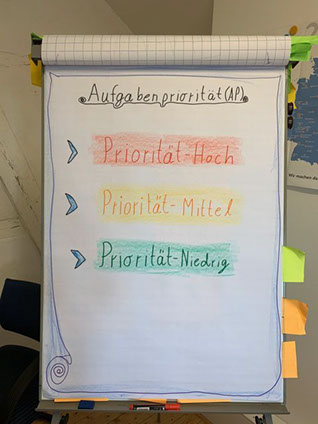 Aufgabenpriorität (AP)
Priorität-Hoch
Priorität-Mittel
Priorität-Niedrig